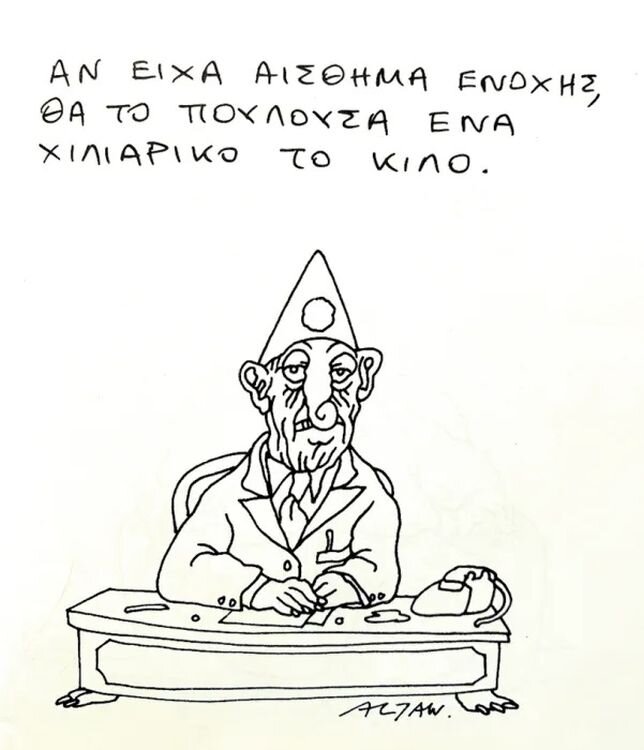 ΑΝ ΕΙΧΑ ΑΙΣΘΗΜΑ ΕΝΟΧΗΣ,
ΘΑ ΤΟ ΠΟΥΛΟΥΣΑ ΕΝΑ
ΧΙΛΙΑΡΙΚΟ ΤΟ ΚΙΛΟ.
ALTAN.